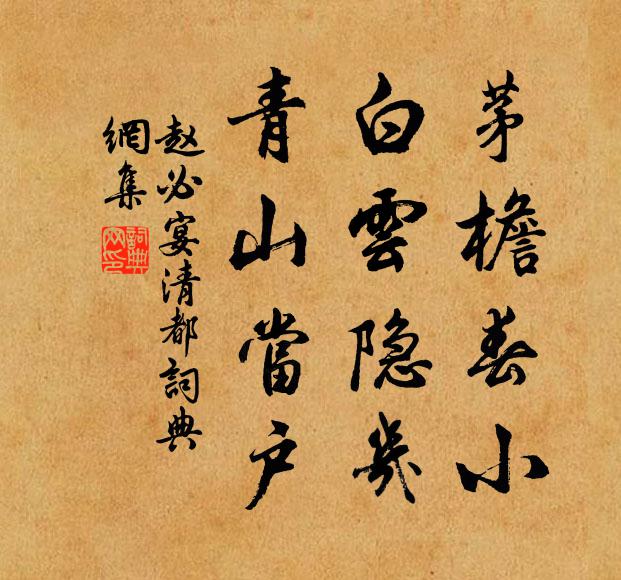 茅檐春小
白雲隐幾
青山當户
赵必宴清都詞典
網集
詞典
网印